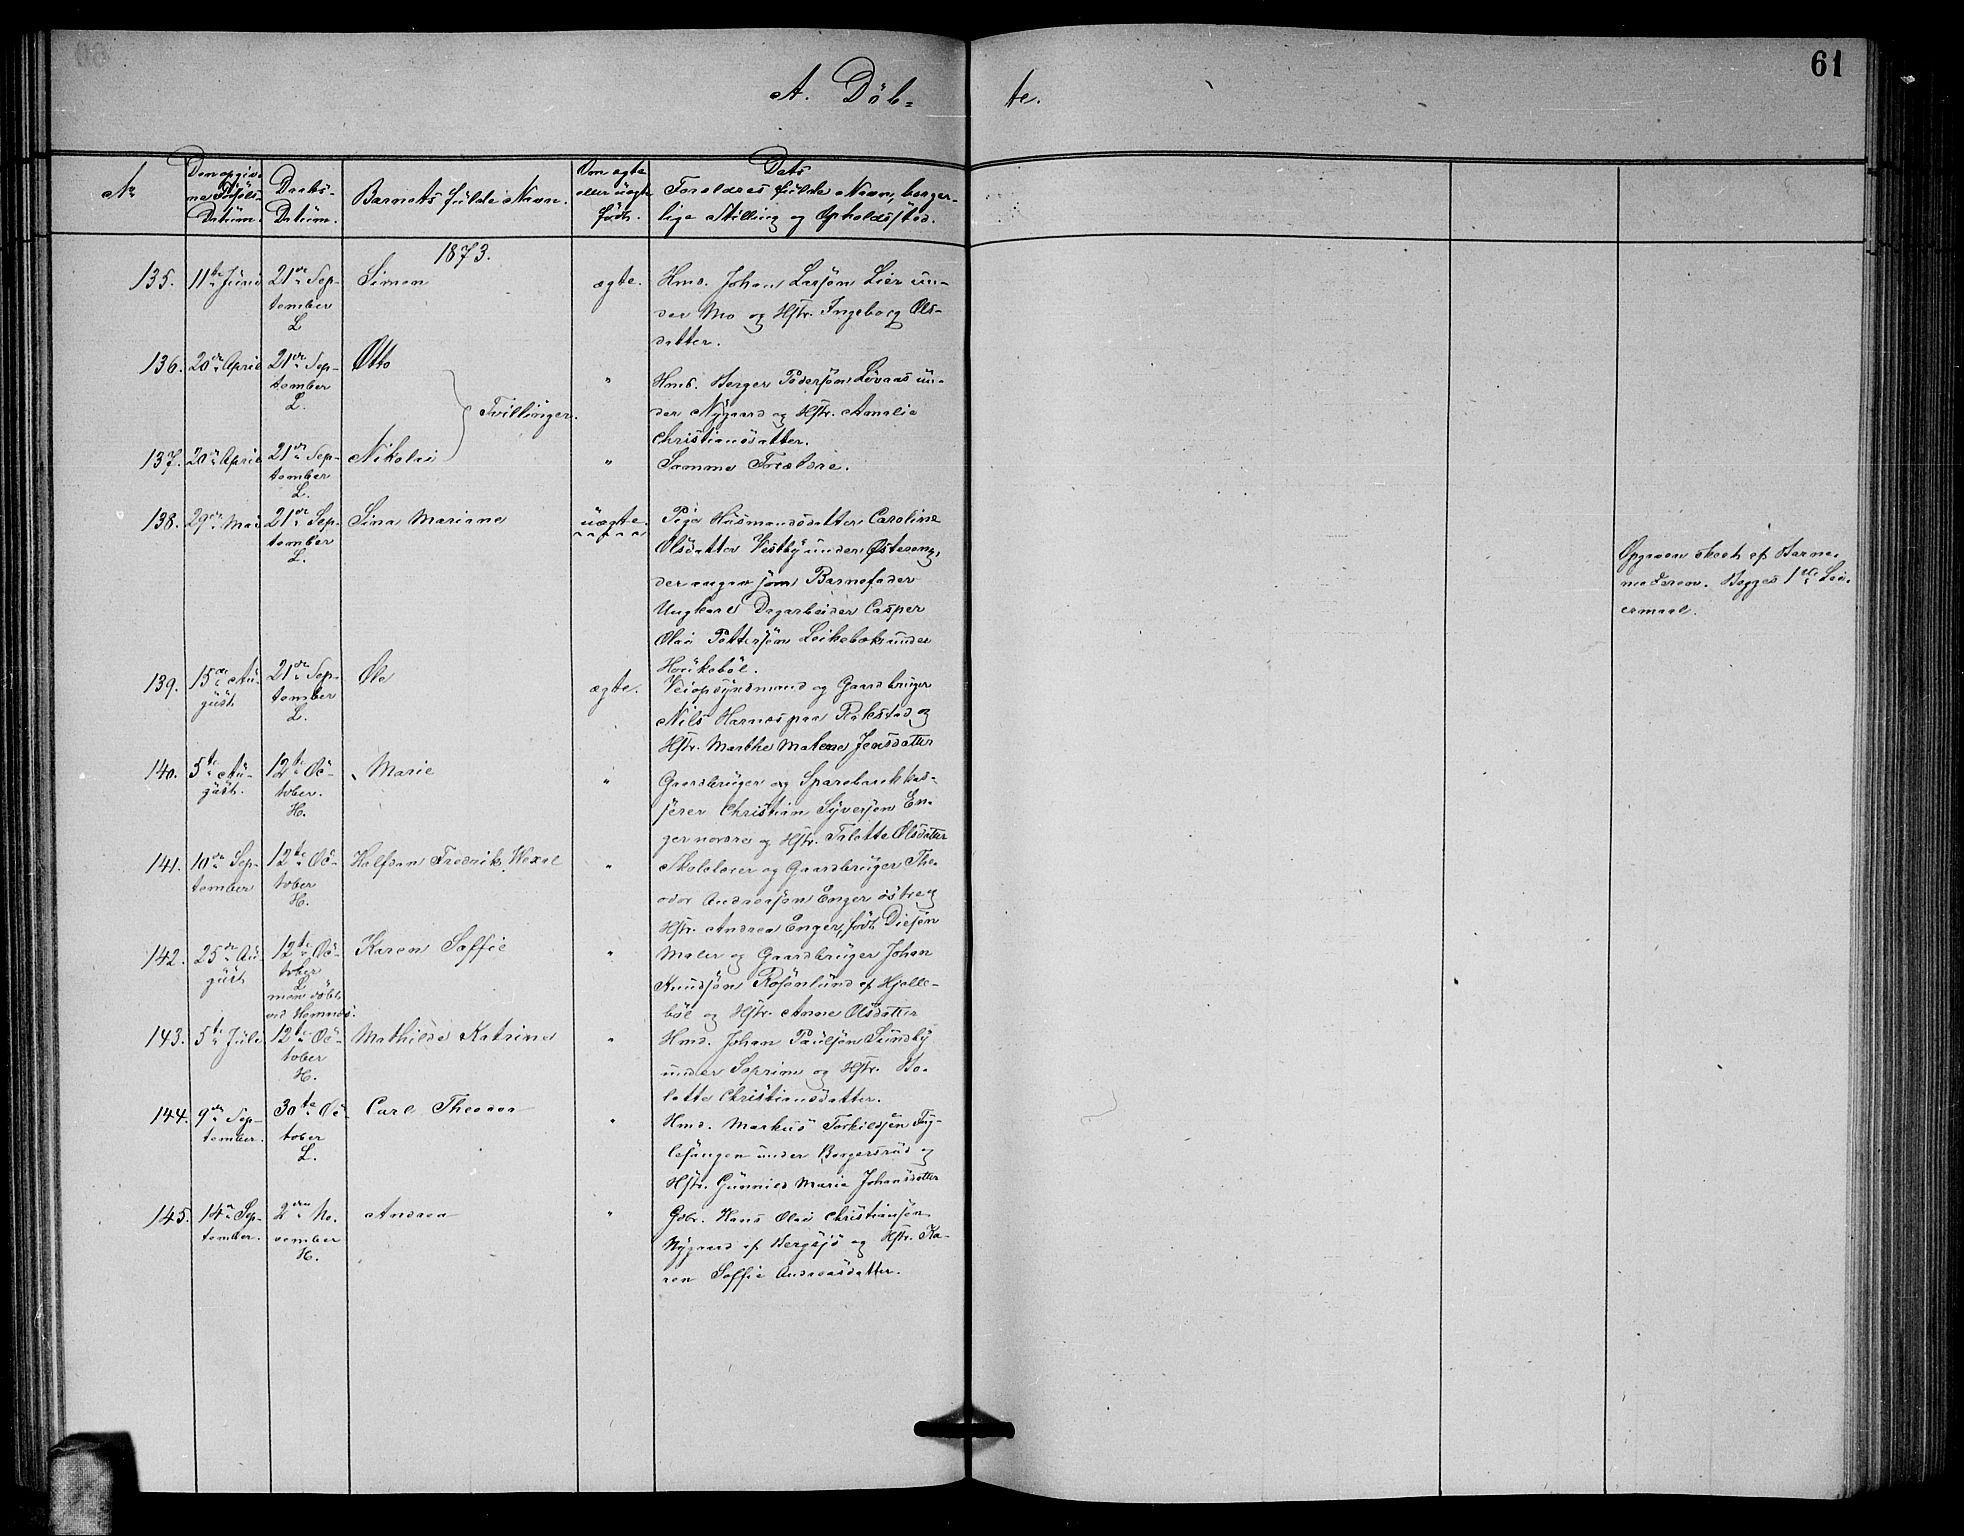 61
A. Döb= te.
No
Den opgivne Fødsels-Datum.
Daabs-Datum.
Barnets fulde Navn.
Om ægte eller uægte født.
Dets Foreldres fulde Navn, borgerlige Stilling og Opholdsted.
1873.
135. 11te Juni 21de September L Simon ægte. Hmd. Johan Larsøn Lier un-
der Mo og Hstr. Ingeborg Ols-
datter.
136. 20de April 21de September L. Otto " Hmd. Berger Pedersøn Løvaas un-
der Nygaard og Hstr. Amalie
Christiansdatter.
Tvillinger.
137. 20de April 21de September L. Nikolai " Samme Forældre.
138. 29de Mai 21de September L. Sina Mariane uægte. Pige Husmandsdatter Caroline
Olsdatter Vestby under Østereng,
der angav som Barnefader
Ungkarl Dagarbeider Casper
Olai Pettersøn Leikebæk under
Haukebøl.
Opgaven skeet af Barne-
moderen. Begges 1ste Lei-
ermaal.
139. 15de August 21de September L. Ole ægte. Veiopsynsmand og Gaardbruger
Nils Harnæs paa Rakstad og
Hstr. Marthe Malene Jensdatter
140. 5te August. 12te October. H. Marie " Gaardbruger og Sparebankkas-
serer Christian Syversøn En-
ger nordre og Hstr. Talette Olsdatter
141. 10de September 12te October H. Halfdan Fredrik Wexel " Skolelærer og Gaardbruger The-
odor Andreasøn Enger østre og
Hstr. Andrea Enger, født Diesøn
142. 25de August 12te October L men døbt ved Hemnes. Karen Soffie " Maler og Gaardbruger Johan
Knudsøn Rosenlund af Hjelle-
bøl og Hstr. Anne Olsdatter
143. 5te Juli 12te October H. Mathilde Katrine " Hmd. Johan Paulsøn Sundby
under Soprim og Hstr. Be-
lette Christiansdatter.
144. 9de September. 30te October L. Carl Theodor " Hmd. Markus Torkildsøn Fug-
lesangen under Borgersrud og
Hstr. Gunnild Maria Johansdatter
145. 14de September. 2den November H. Andrea " Gdbr. Hans Olai Christiansøn
Nygaard af Bergsjø og Hstr. Ka-
ren Soffie Andreasdatter.